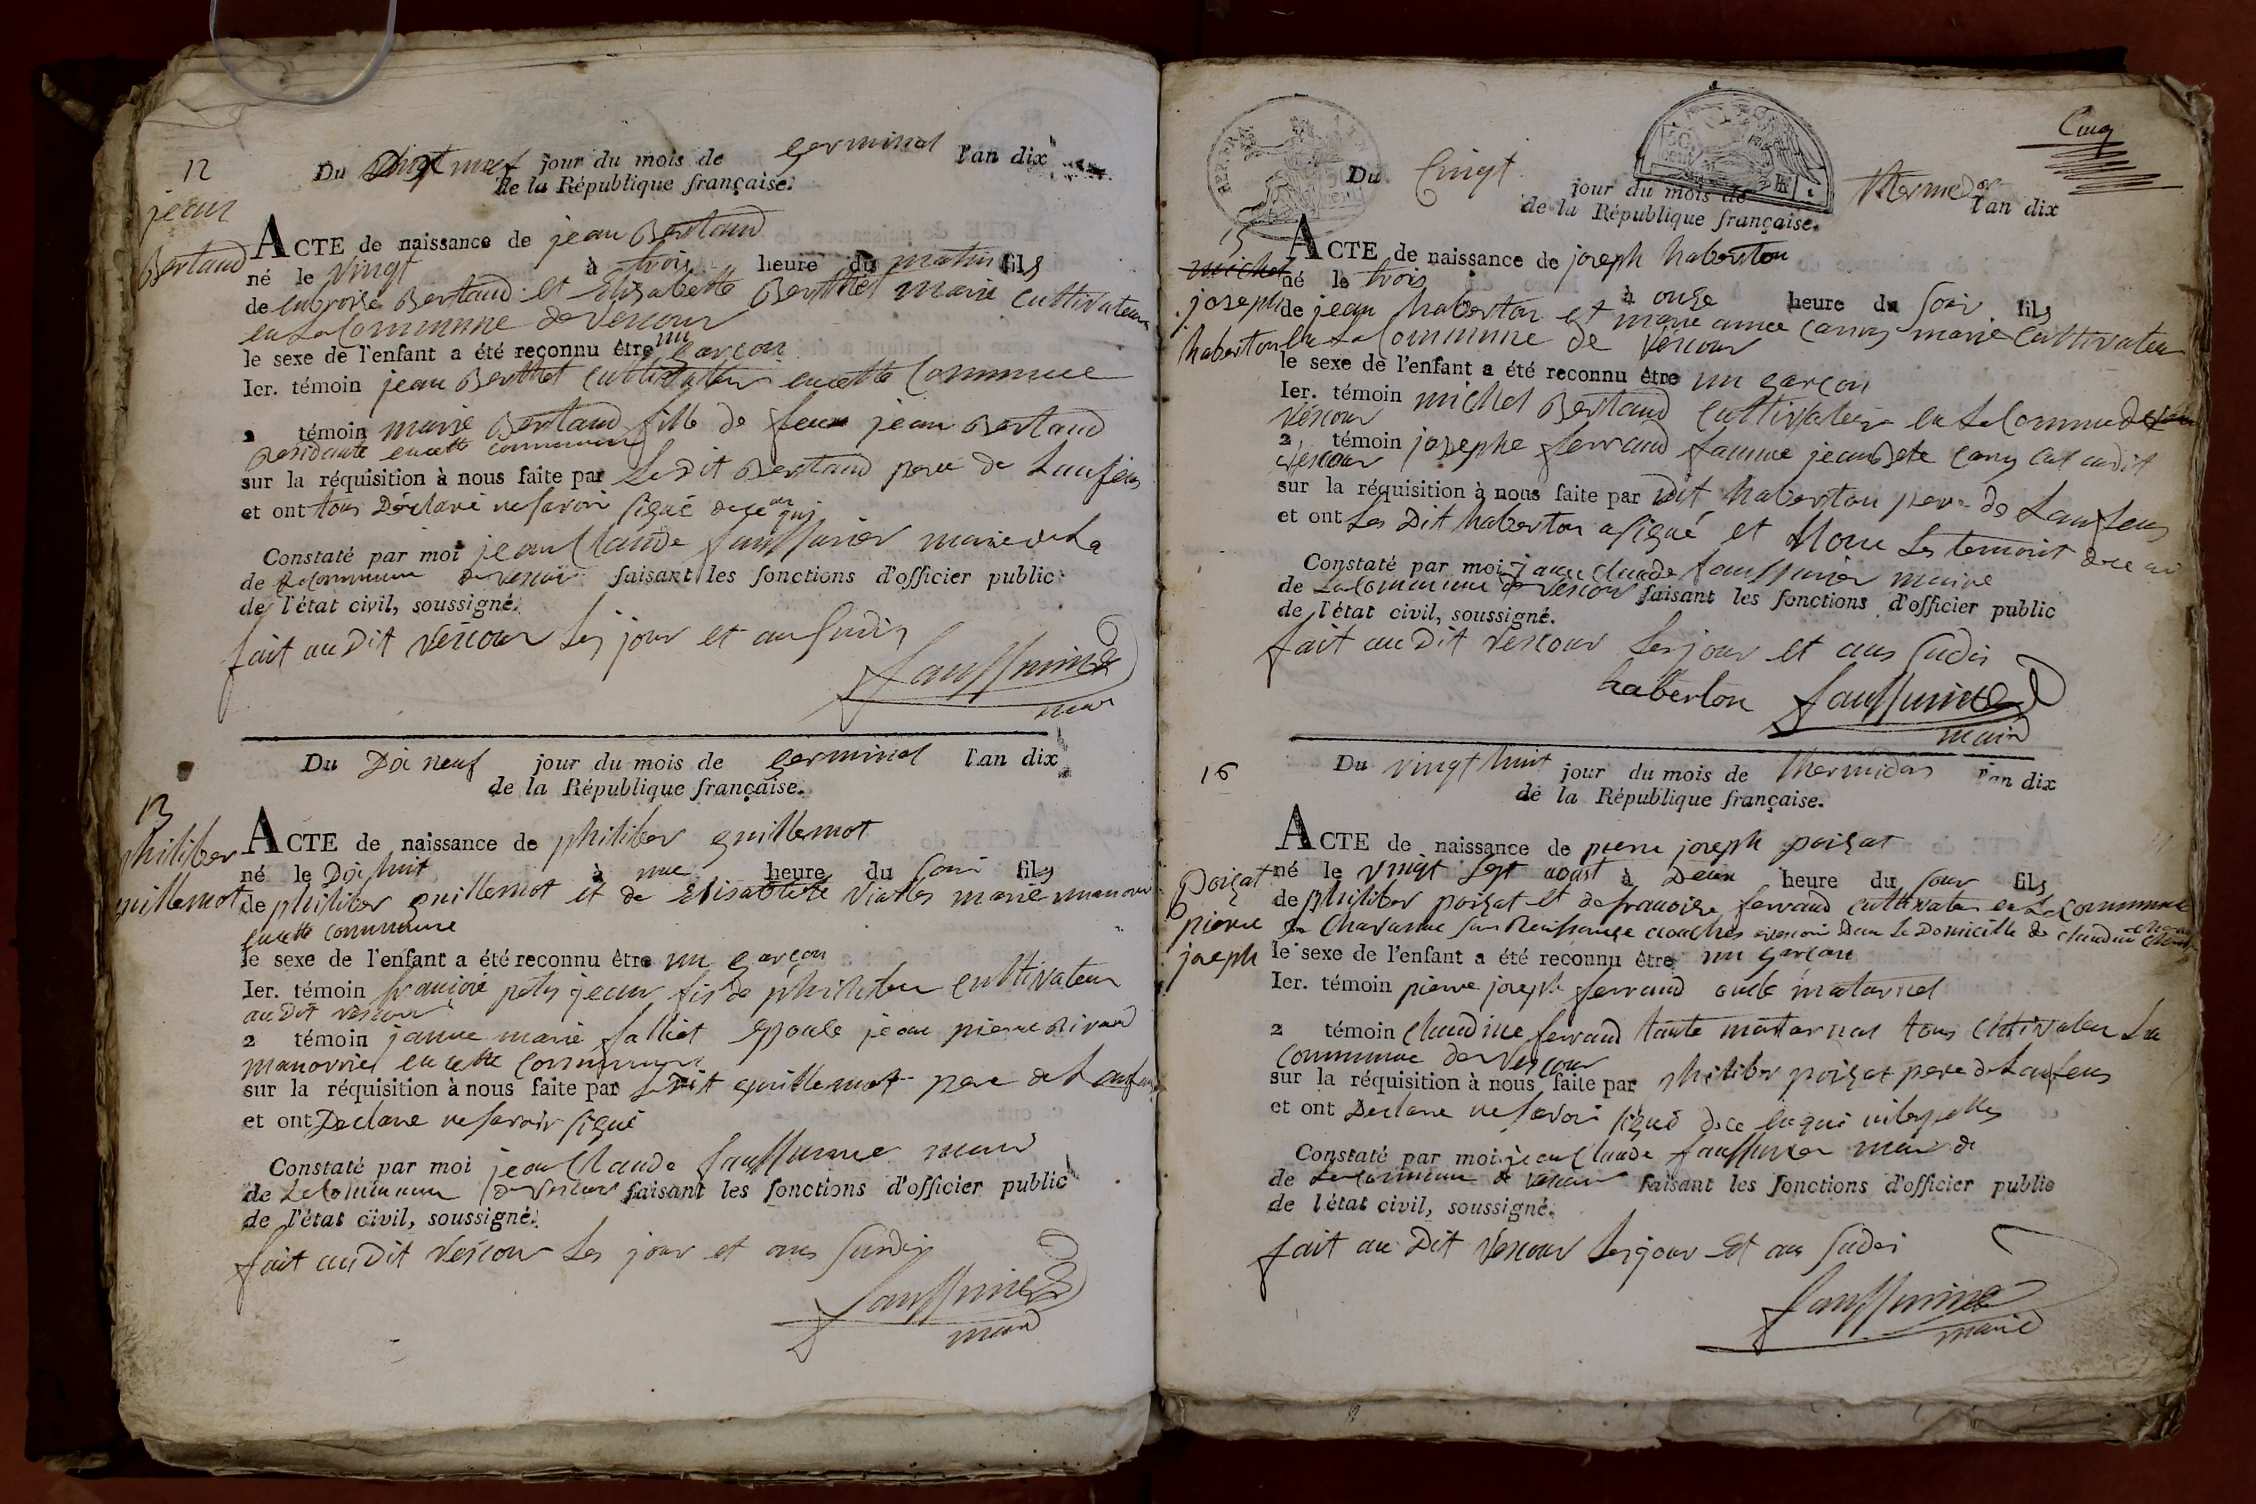 12
Du vingt neuf jour du mois de germinal l'an dix
de la République française.
jean
Bertaud
ACTE de naissance de jean Bertaud
né le vingt à trois heure du matin fils
de enbroise Bertaud et Elisabette Berthet marie cultivateur
en La Commune de Vescour
le sexe de l'enfant a été reconnu être un garçon
Ier. témoin jean Berthet cultivateur encette Commune
2 témoin marie Bertaud fille de feux jean Bertaud
Residante encette commune
sur la réquisition à nous faite par Le Dit Bertaud pere de Lanfens
et ont tous Déclaré ne savoir signé dece
Constaté par moi jean Claude
de La Commune de Vescour faisant les fonctions d'officier public
de l'état civil, soussigné.
fait au Dit Vescour Les jour et an sudis
Du Dix neuf jour du mois de germinal l'an dix
de la République française.
13
philiber
guillemot
ACTE de naissance de philiber guillemot
né le Dix huit à une heure du soir fils
de philiber guillemot et de Elisabete marie manovrier
encette commune
le sexe de l'enfant a été reconnu être un garçon
Ier. témoin petit jean fis de philiber cultivateur
au Dit vescour
2 témoin janne marie Epouse jean pierre
manovrier encette commune
sur la réquisition à nous faite par Le Dit guillemot pere de Lenfens
et ont Declare ne savoir signé
Constaté par moi jean Claude maire
de La Commune de Vescour faisant les fonctions d'officier public
de l'état civil, soussigné.
fait au Dit Vescour Les jour et ans susdis
maire
Cinq
Du vingt jour du mois de Thermedor l'an dix
de la République française.
15
michel
joseph
haberton
ACTE de naissance de joseph haberton
né le trois à onze heure du soir fils
de jean haberton et marie anne Cany marie Cultivateur
en La Commune de Vescour
le sexe de l'enfant a été reconnu être un garçon
Ier. témoin michel Bertaud Cultivateur en La Commune de
Vescour
2 témoin josephe ferraud famme jean Cany au dit
Vescour
sur la réquisition à nous faite par Dit haberton pere de Lanfens
et ont Les Dit haberton a signé et Non Les temoins dece
Constaté par moi jean Claude maire
de La Commune de Vescour faisant les fonctions d'officier public
de l'état civil, soussigné.
fait au Dit Vescour Les jour et ans sudis
haberton
maire
16
Du vingt huit jour du mois de thermidor l'an dix
de la République française.
poizat
pierre
joseph
ACTE de naissance de pierre joseph poizat
né le vingt sept aoust à Deux heure du soir fils
de philiber poizat et de franoise ferraud cultivateur en La Commune
le sexe de l'enfant a été reconnu être un garçon
Ier. témoin pierre joseph ferraud oncle maternel
2 témoin Claudine ferraud tante maternel tous Cultivateur
Commune de Vescour
sur la réquisition à nous faite par philiber poizat pere de Lanfens
et ont Declare ne savoir signé
Constaté par moi jean Claude maire de
de La Commune de Vescour faisant les fonctions d'officier public
de l'état civil, soussigné.
fait au Dit Vescour Les jour et ans sudis
maire